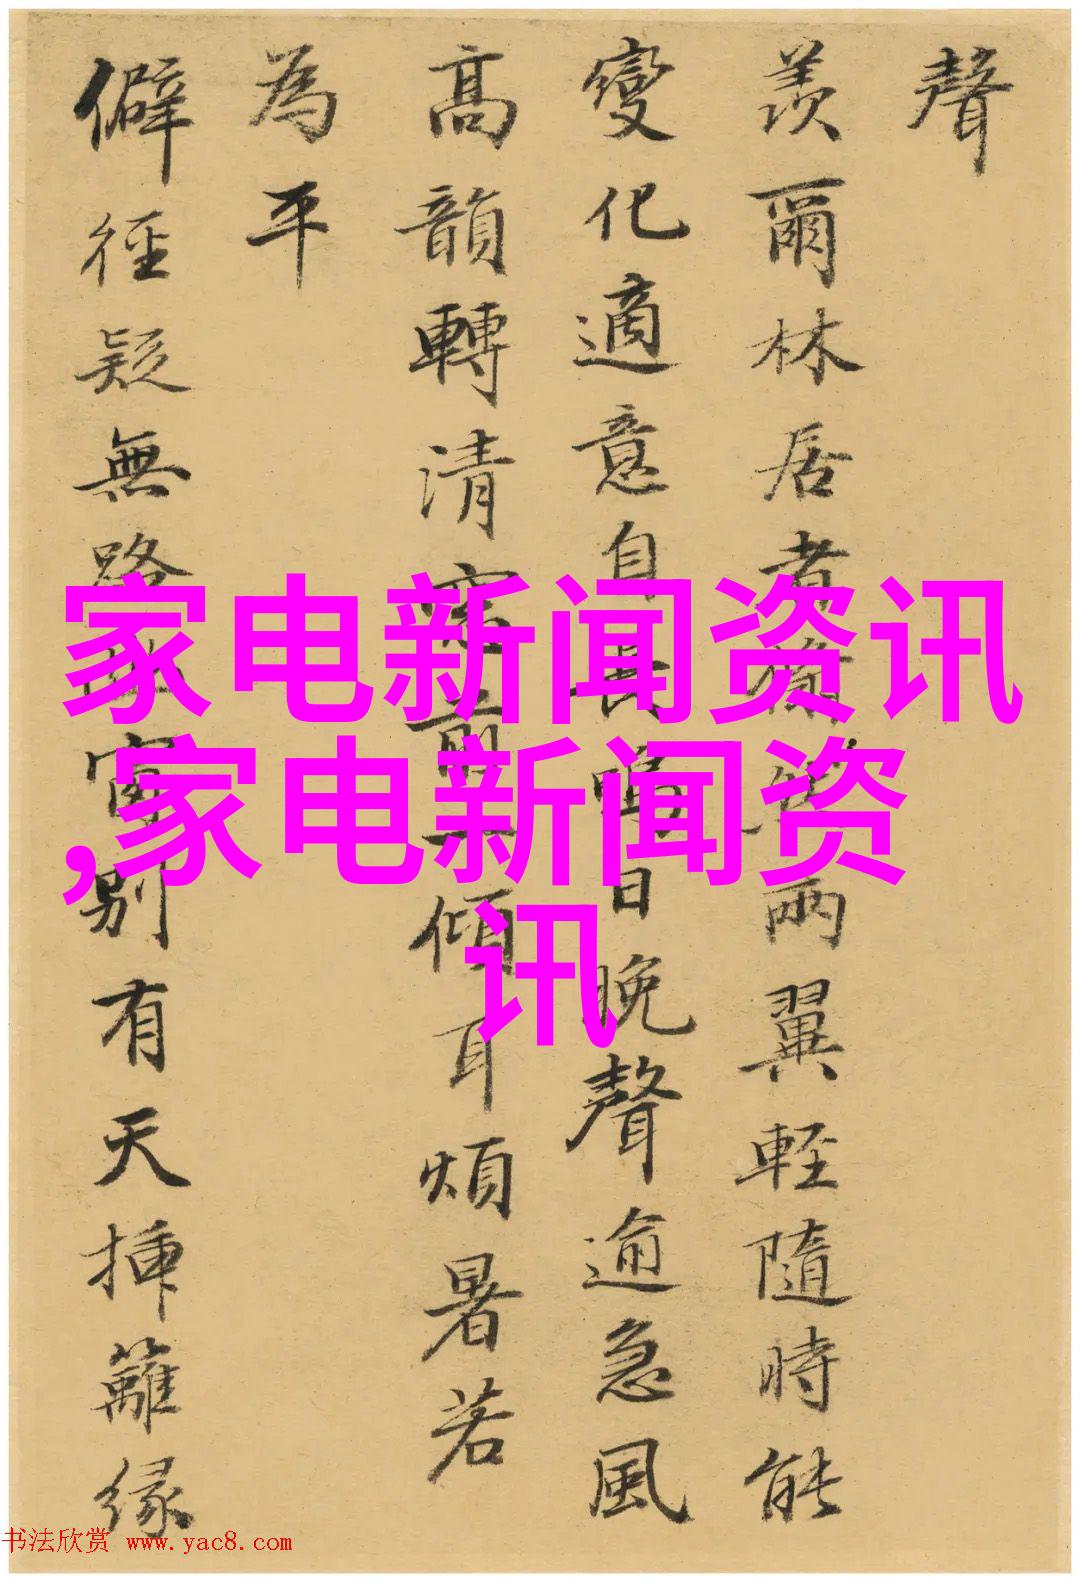 聲
羨爾林居者兩翼輕隨時能
變化適意自長鳴日晚聲逾急風
高韻轉清窓前一傾耳煩暑若
為平
僻徑疑無路窗別有天插籬緣
家电新闻资讯
,家电新闻资
讯
书法欣赏 www.yac8.com